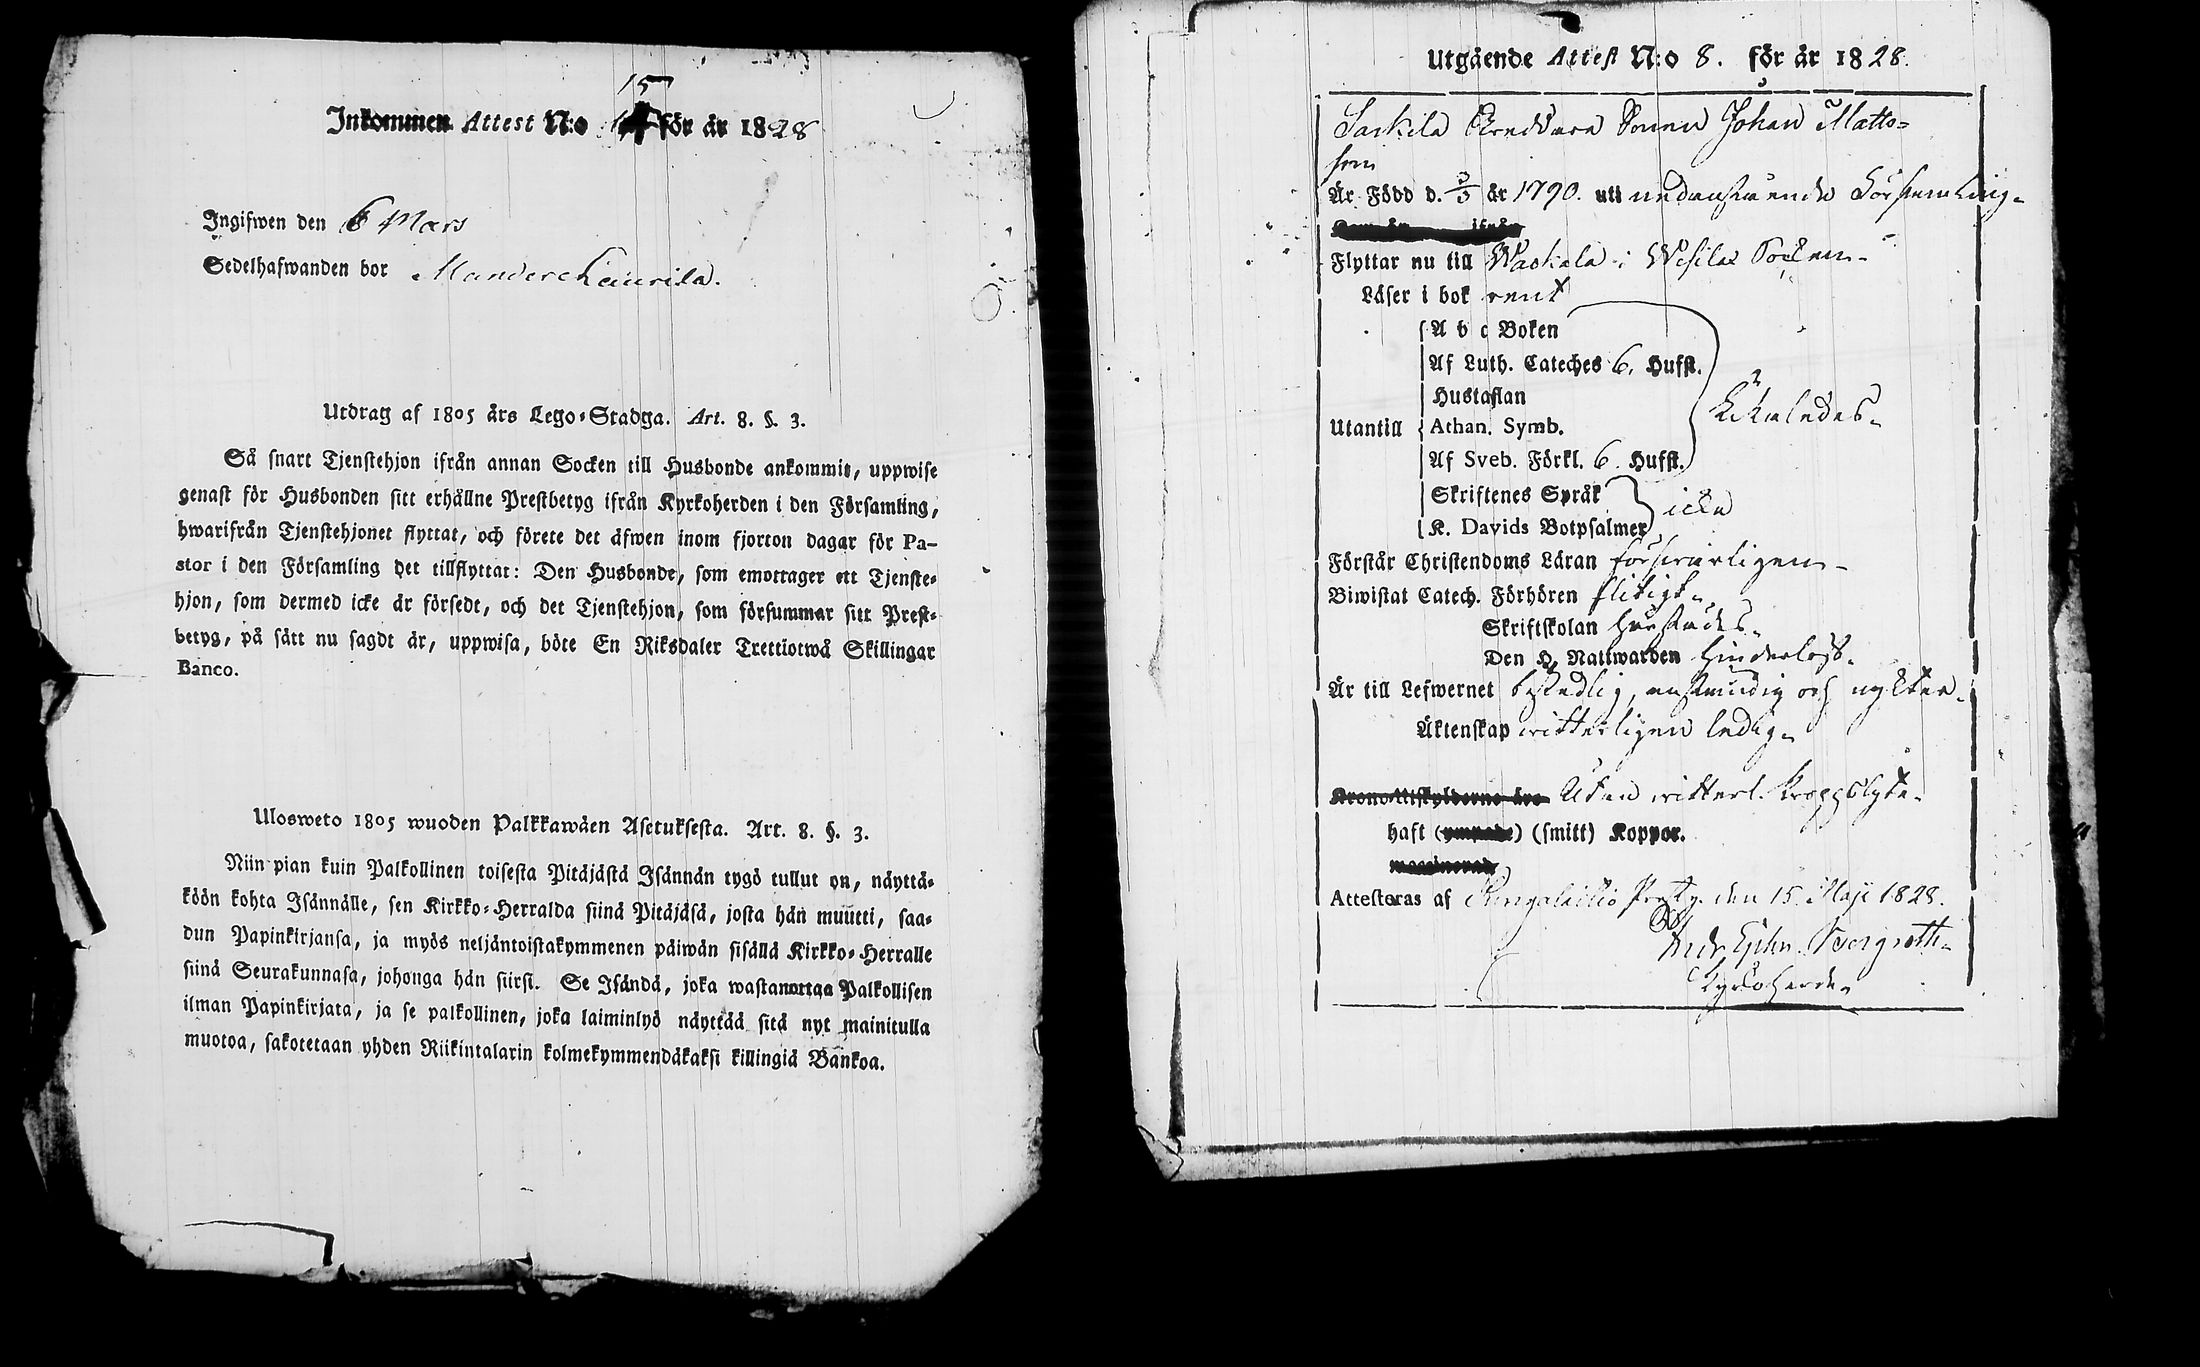 15
Inkommen Attest N:o för år 1828
Ingifwen den 6 Mars
Sedelhafwanden bor
Utdrag af 1805 års Lego-Stadga. Art. 8. §. 3.
Så snart Tjenstehjon ifrån annan Socken till Husbonde ankommit, uppwise
genast för Husbonden sitt erhållne Prestbetyg ifrån Kyrkoherden i den Församling,
hwarifrån Tjenstehjonet flyttat, och förete det äfwen inom fjorton dagar för Pa-
stor i den Församling det tillflyttat: Den Husbonde, som emottager ett Tjenste-
hjon, som dermed icke är försedt, och det Tjenstehjon, som försummar sitt Prest-
betyg, på sätt nu sagdt är, uppwisa, böte En Riksdaler Trettiotwå Skillingar
Banco.
Ulosweto 1805 wuoden Palkkawäen Asetuksesta. Art. 8. §. 3.
Niin pian kuin Palkollinen toisesta Pitäjästä Isännän tygö tullut on, näyttä-
köön kohta Isännälle, sen Kirkko-Herralda siinä Pitäjäsä, josta hän muutti, saa-
dun Papinkirjansa, ja myös neljäntoistakymmenen päiwän sisällä Kirkko-Herralle
siinä Seurakunnasa, johonga hän siirsi. Se Isändä, joka wastanottaa Palkollisen
ilman Papinkirjata, ja se palkollinen, joka laiminlyö näyttää sitä nyt mainitulla
muotoa, sakotetaan yhden Riikintalarin kolmekymmendäkaksi killingiä Bankoa.
Utgående Attest N:o 8. för år 1828.
Sonen Johan Matts-
son
Är Född d. 3/3 år 1790. uti nedanstående Församling.
Flyttar nu till i Wesilax Socken.
Läser i bok rent
Utantill
A b c Boken
Af Luth. Cateches 6. Hufst.
Hustaflan
Athan. Symb.
Af Sveb. Förkl. 6. Hufst.
Likaledes.
Skriftenes Språk
K. Davids Botpsalmer
icke
Förstår Christendoms Läran förswarligen.
Biwistat Catech. Förhören flitigt.
Skriftskolan
Den H. Nattwarden hinderlöst.
Är till Lefwernet beskedlig, anständig och nykter.
Äktenskap witterligen ledig.
Utan witterl. kroppslyte.
haft (smitt) Koppor.
Attesteras af Pungalaitio Prestg. den 15 Maji 1828.
And. Ephr. Bergroth
Kyrkoherde